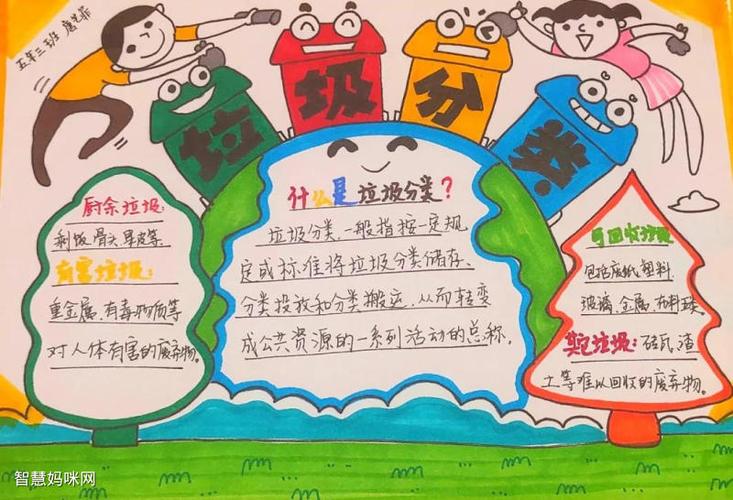 五年三班 唐艺菲
垃圾分类
什么是垃圾分类?
垃圾分类,一般指按一定规
定或标准将垃圾分类储存、
分类投放和分类搬运,从而转变
成公共资源的一系列活动的总称。
厨余垃圾:
剩饭、骨头、果皮等
有害垃圾:
重金属、有毒物质等
对人体有害的废弃物。
可回收垃圾
包括废纸、塑料、
玻璃、金属、布料类
其它垃圾:砖瓦、渣
土等难以回收的废弃物。
智慧妈咪网